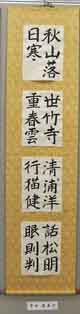 秋山落
日寒
世竹寺
重春雲
清浦洋
行猫健
話松明
眼則判